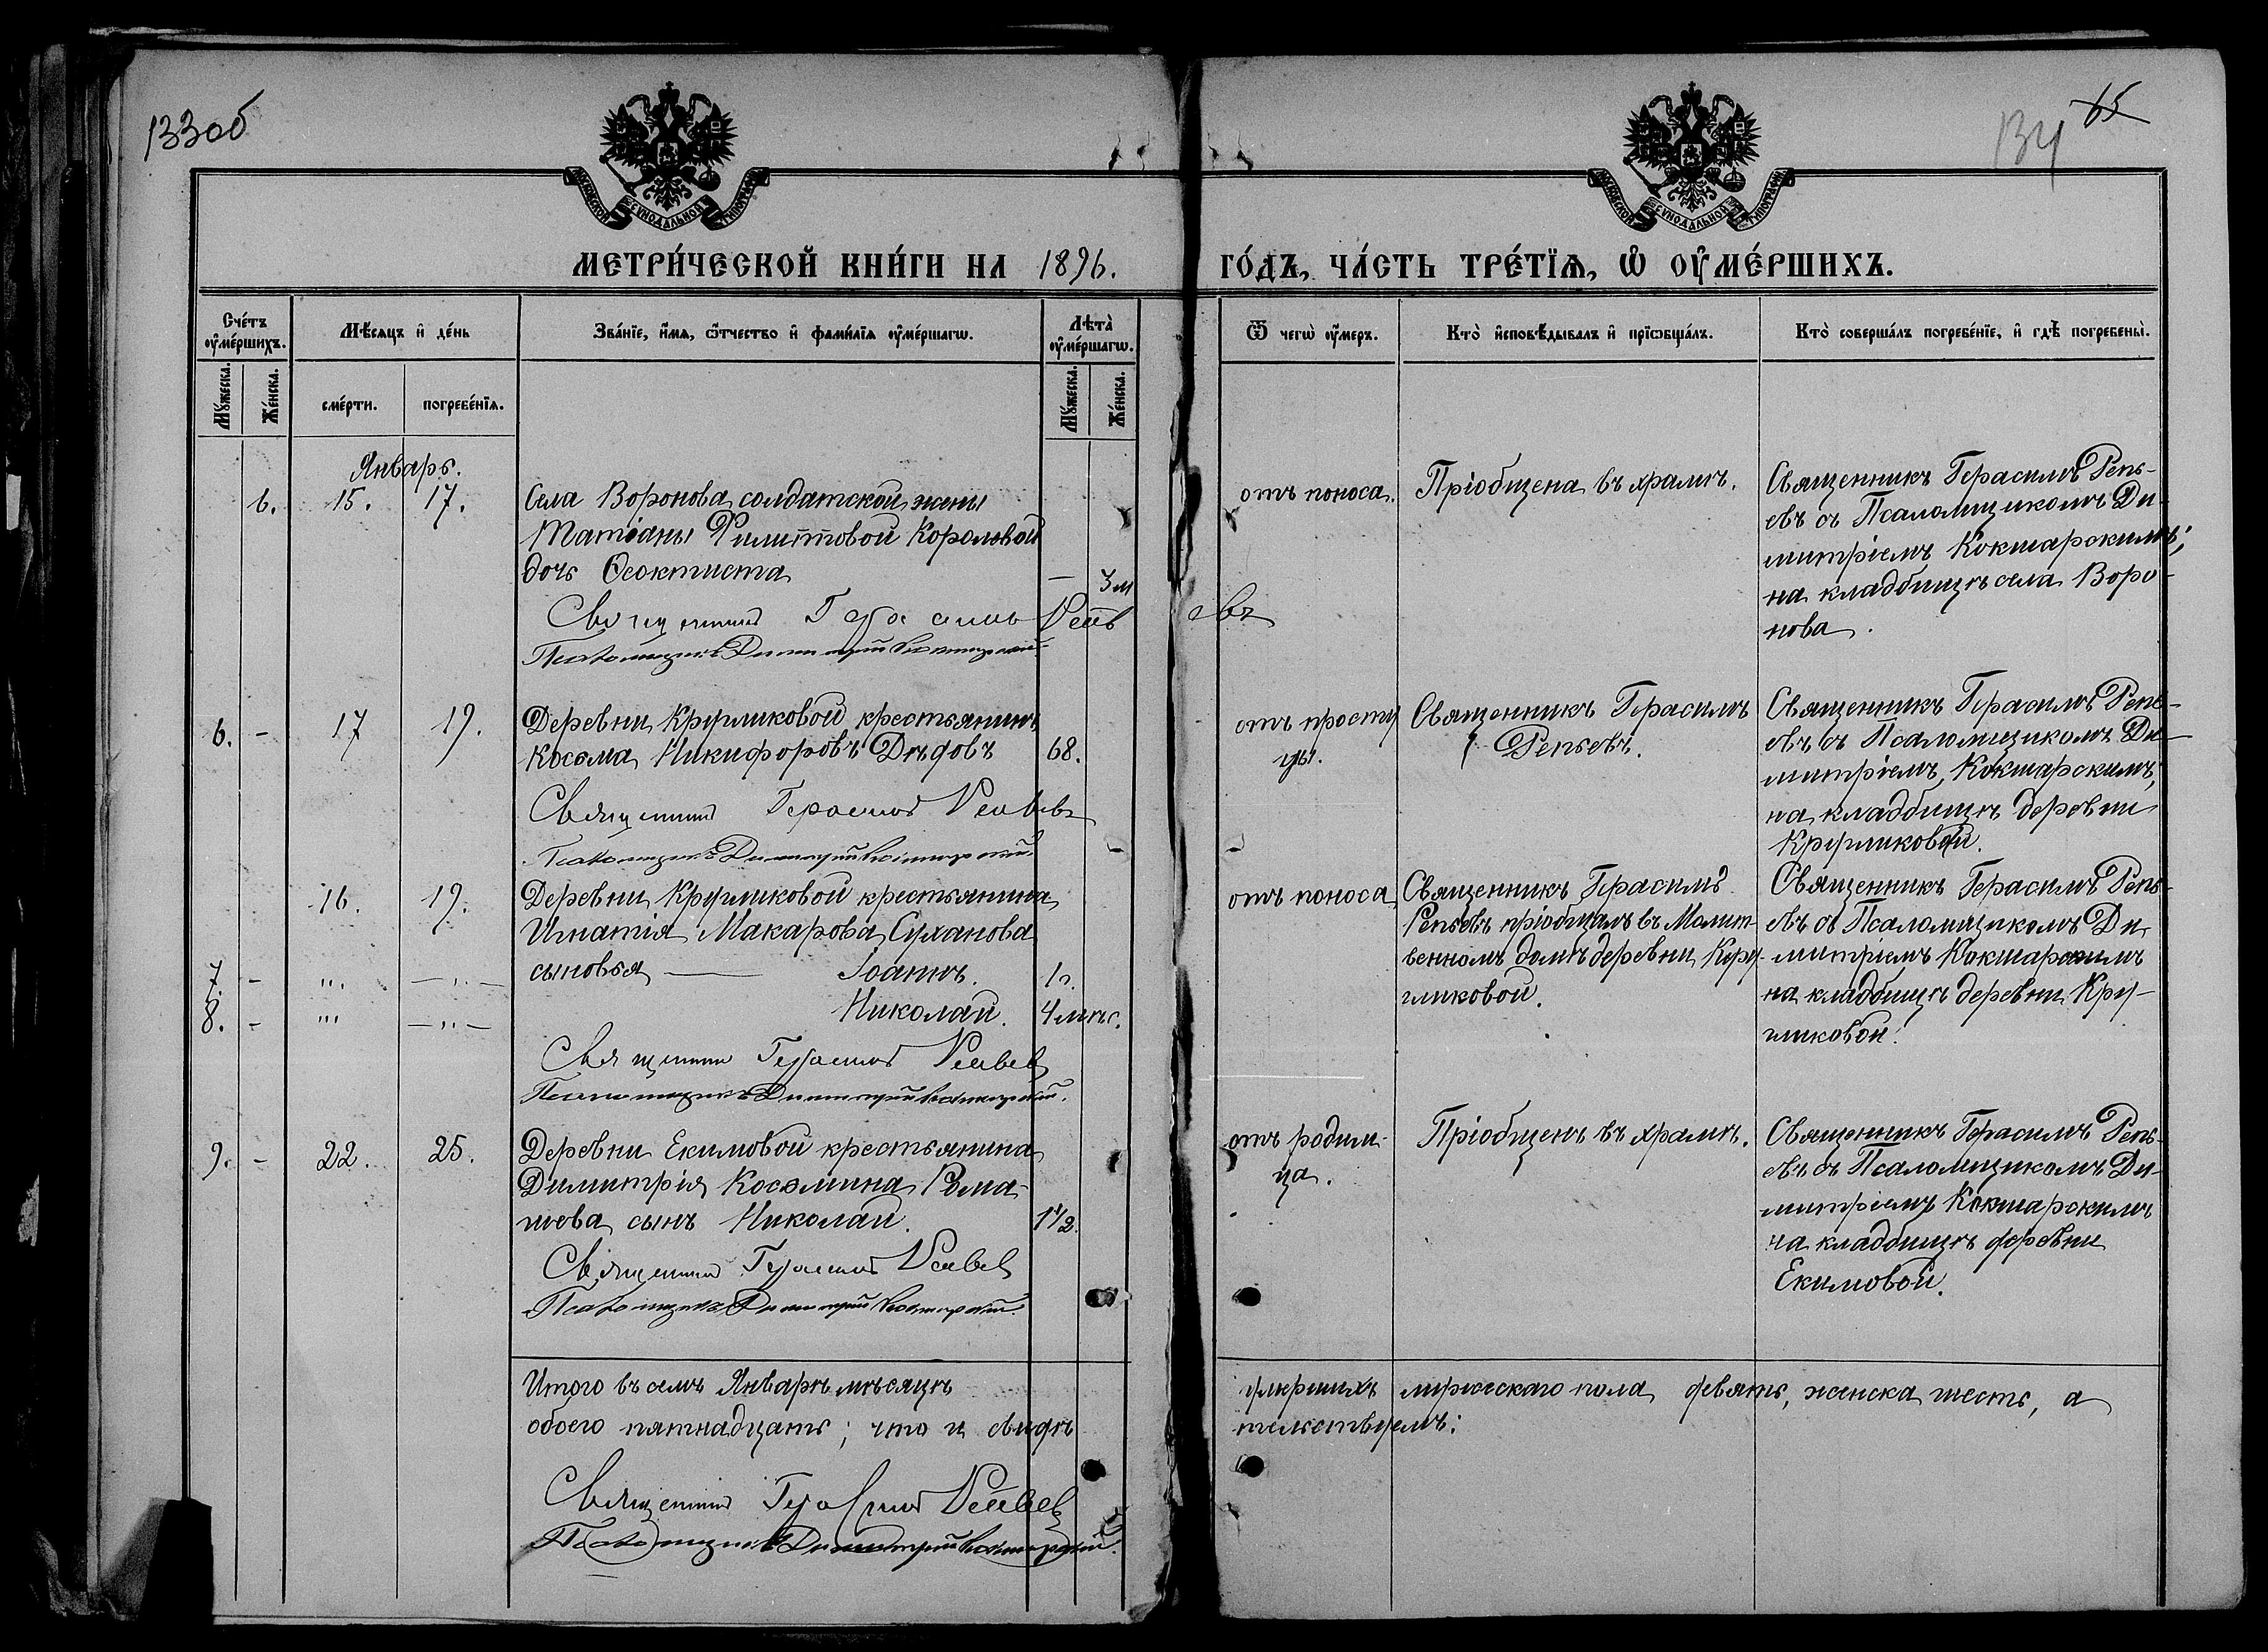 133об
134 65
МОСКОВСКОЙ СѴНОДАЛЬНОЙ ТИПОГРАФІИ
МОСКОВСКОЙ СѴНОДАЛЬНОЙ ТИПОГРАФІИ
МЕТРИ́ЧЕСКОЙ КНИ́ГИ НА 1896. ГО́ДЪ, ЧА́СТЬ ТРЕ́ТЇѦ, Ѡ҆ ОУ҆МЕ́РШИХЪ.
Сче́тъ оу҆ме́ршихъ.
Мѣ́сяцъ и҆ де́нь
Зва́нїе, и҆́мѧ, ѻ҆́тчество и҆ фамилїѧ оу҆ме́ршагѡ.
Лѣта̀ оу҆ме́ршагѡ.
Ѿ чегѡ̀ оу҆́меръ.
Кто̀ и҆сповѣ́дывалъ и҆ прїѡбща́лъ.
Кто̀ соверша́лъ погребе́нїе, и҆ гдѣ̀ погребены̀.
Мꙋ́жеска.
Же́нска.
сме́рти.
погребе́нїѧ.
Мꙋ́жеска.
Же́нска.
Январь.
6. 15. 17.
Села Воронова солдатской жены
Татіаны Филипповой Королевой
дочь Ѳеоктиста — 3 м
Священникъ Герасимъ Репьевъ
Псаломщикъ Димитрій Кокшарскій
отъ поноса.
Пріобщена въ храмѣ.
Священникъ Герасимъ Репь-
евъ съ Псаломщикомъ Ди-
митріемъ Кокшарскимъ;
на кладбищѣ села Воро-
нова.
6. - 17 19.
Деревни Кругликовой крестьянинъ
Косма Никифоровъ Дѣдовъ 68.
Священникъ Герасимъ Репьевъ
Псаломщикъ Димитрій Кокшарскій
отъ просту
ды.
Священникъ Герасимъ
Репьевъ.
Священникъ Герасимъ Репь-
евъ съ Псаломщикомъ Ди-
митріемъ Кокшарскимъ,
на кладбищѣ деревни
Кругликовой.
16. 19.
Деревни Кругликовой крестьянина
Игнатія Макарова Суханова
7. - "". —"—
сыновья —— Іоаннъ. 1г.
8. - "" —"—
Николай. 4 мѣс.
Священникъ Герасимъ Репьевъ
Псаломщикъ Димитрій Кокшарскій.
отъ поноса
Священникъ Герасимъ
Репьевъ пріобщалъ въ Молит-
венномъ домѣ деревни Кру-
гликовой.
Священникъ Герасимъ Репь-
евъ съ Псаломщикомъ Ди
митріемъ Кокшарскимъ
на кладбищѣ деревни Кру-
гликовой.
9. - 22. 25.
Деревни Екимовой крестьянина
Димитрія Косьмина Рома-
шева сынъ Николай. 1 1/2.
Священникъ Герасимъ Репьевъ
Псаломщикъ Димитрій Кокшарскій.
отъ родим-
ца.
Пріобщенъ въ храмѣ.
Священникъ Герасимъ Репь-
евъ съ Псаломщикомъ Ди-
митріемъ Кокшарскимъ
на кладбищѣ деревни
Екимовой.
Итого въ семъ Январѣ мѣсяцѣ умершихъ мужескаго пола девять, женска шесть, а
обоего пятнадцать; что и свидѣтельствуемъ:
Священникъ Герасимъ Репьевъ
Псаломщикъ Димитрій Кокшарскій.